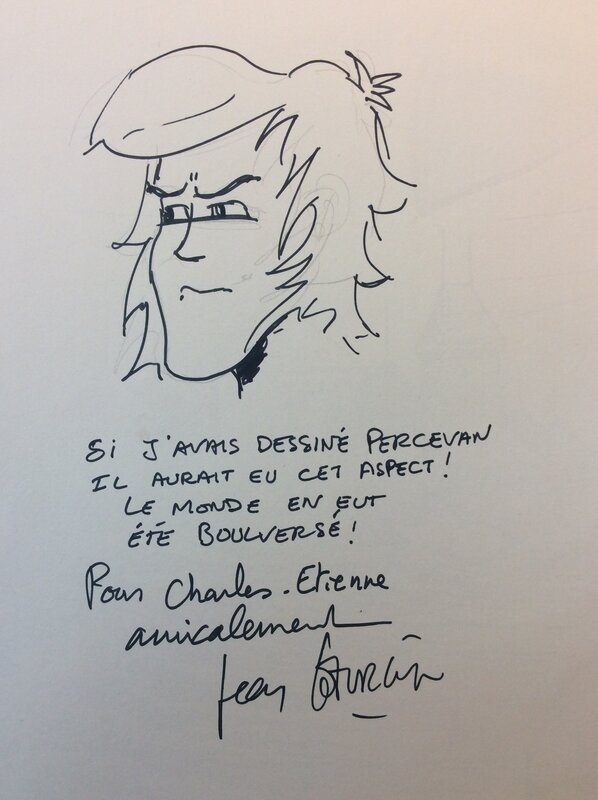 SI J'AVAIS DESSINÉ PERCEVAN
IL AURAIT EU CET ASPECT !
LE MONDE EN EUT
ÉTÉ BOULVERSÉ !
Pour Charles-Etienne
amicalement
Jean Léturgie